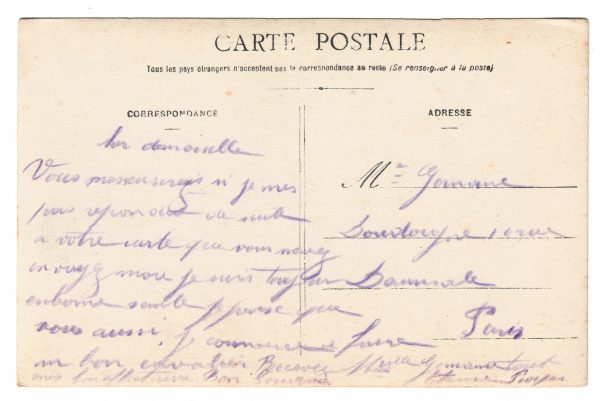 CARTE POSTALE
Tous les pays étrangers n'acceptent pas la correspondance au recto (Se renseigner à la poste)
CORRESPONDANCE
ADRESSE
demoiselle
Vous mescuserez si je mes
pas repondu de suite
a votre carte que vous mavez
envoyez moi je suis toujour
enbonne sante je pense que
vous aussi, je commence a faire
un bon cavalier Recevez Mlle Germane tout
mes
Mlle Germane
rue
Paris